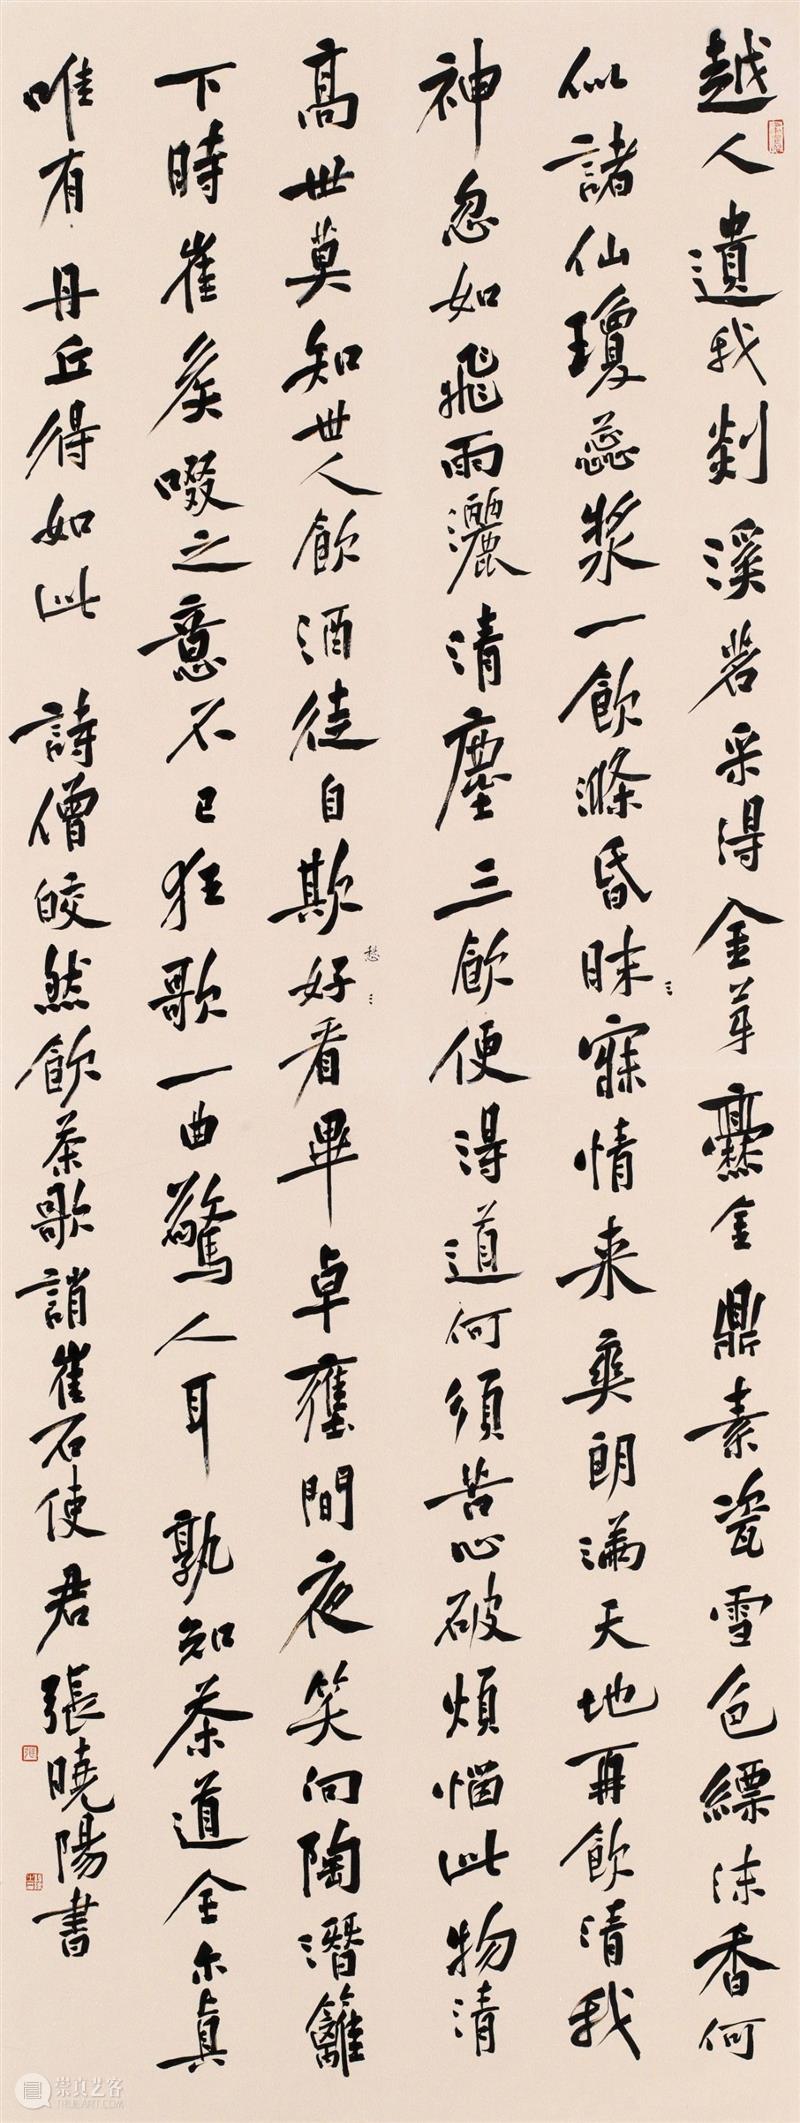 越人遺我剡溪茗采得金芽爨金鼎素瓷雪色縹沫香何
似諸仙瓊蕊漿一飲滌昏昧寐情来爽朗满天地再飲清我
神忽如飛雨灑清塵三飲便得道何須苦心破煩惱此物清
高世莫知世人飲酒徒自欺好看畢卓甕間夜笑向陶潛籬
愁
下時崔侯啜之意不已狂歌一曲驚人耳孰知茶道全尔真
唯有丹丘得如此 詩僧皎然飲茶歌誚崔石使君張曉陽書
崇真艺客
TRUEART.COM